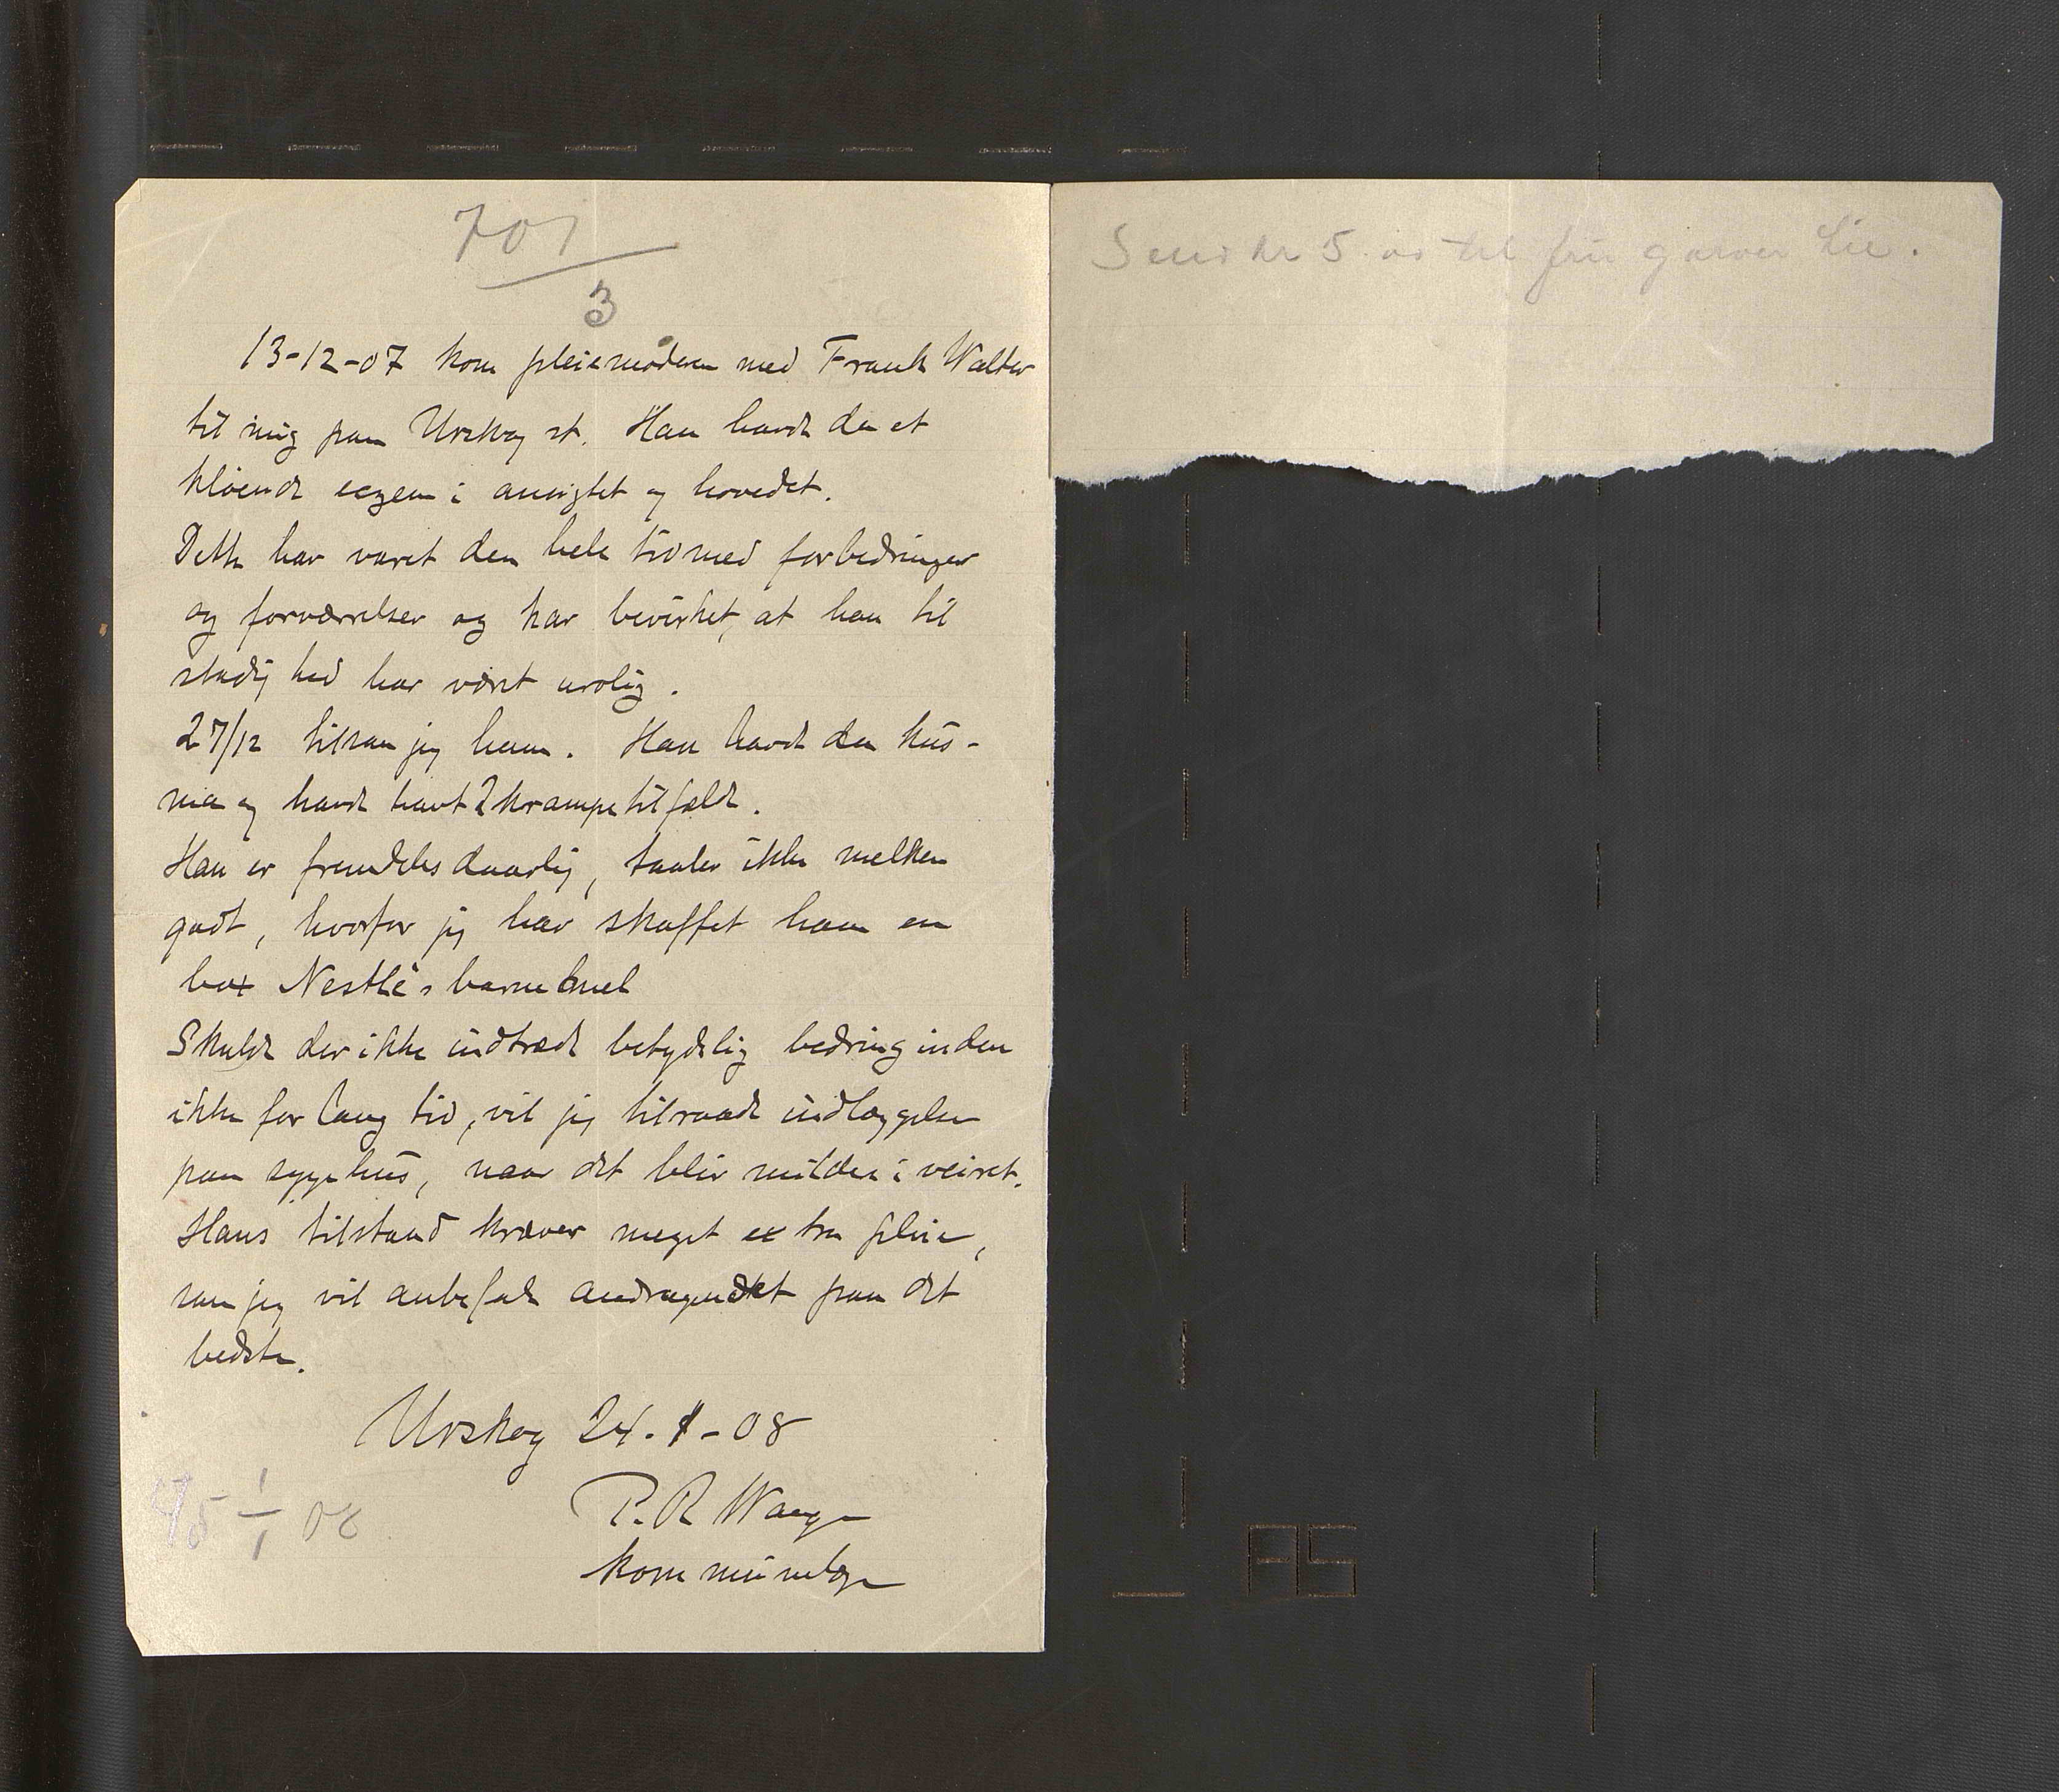 701
3
13-12-07 kom pleiemoderen med Frank Walter
til mig paa Urskog st. Han havde da et
kløende eczem i ansigtet og hovedet.
Dette har været den hele tid med forbedringer
og forværrelser og har bevirket, at han til
stadighed har vært urolig.
27/12 tilsaa jeg ham. Han havde da
og havde havt 2 krampetilfælde.
Han er fremdeles daarlig, taaler ikke melken
godt, hvorfor jeg har skaffet ham en
box Nestlé's barnemel
Skulde der ikke indtræde betydelig bedring inden
ikke for lang tid, vil jeg tilraade indlæggelse
paa sygehus, naar det blir mildere i veiret.
Hans tilstand kræver meget extra pleie,
saa jeg vil anbefale andragendet paa det
bedste.
Urskog 24-1-08
P. R. Waage
kommunelæge
1/1 08
Send kr 5. til fru garver Lie.